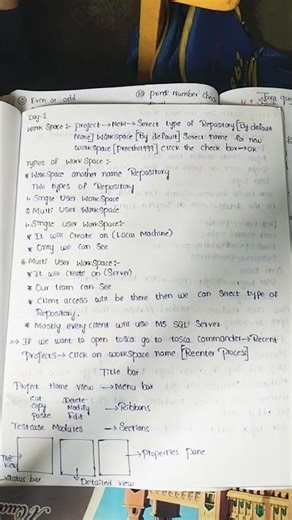 Even or odd
Prime Number check
Day-1
Work Space :- project → New → Select type of Repository [By default
Name] Workspace [By default] Select name for new
workspace [Preethi1999] click the check box → OK
Types of Workspace :-
* Workspace another name Repository
Two types of Repository
Single User Workspace
Multi User Workspace
Single User Workspace :-
* It will Create on (Local Machine)
* Only we can see
Multi User Workspace :-
* It will Create on (Server)
* Our team can See
* Client access will be there then we can Select type of
Repository.
* Mostly every client will use MS SQL Server
⇒ If we want to open tosca go to tosca commander → Recent
Projects → Click on workspace name [Reenter Process]
Title bar
Project Home View → Menu bar
Cut Delete
Copy Modify → Ribbons
Paste Edit
Testcase Modules → Sections
Tree
View
→ Properties pane
Status bar
Detailed view